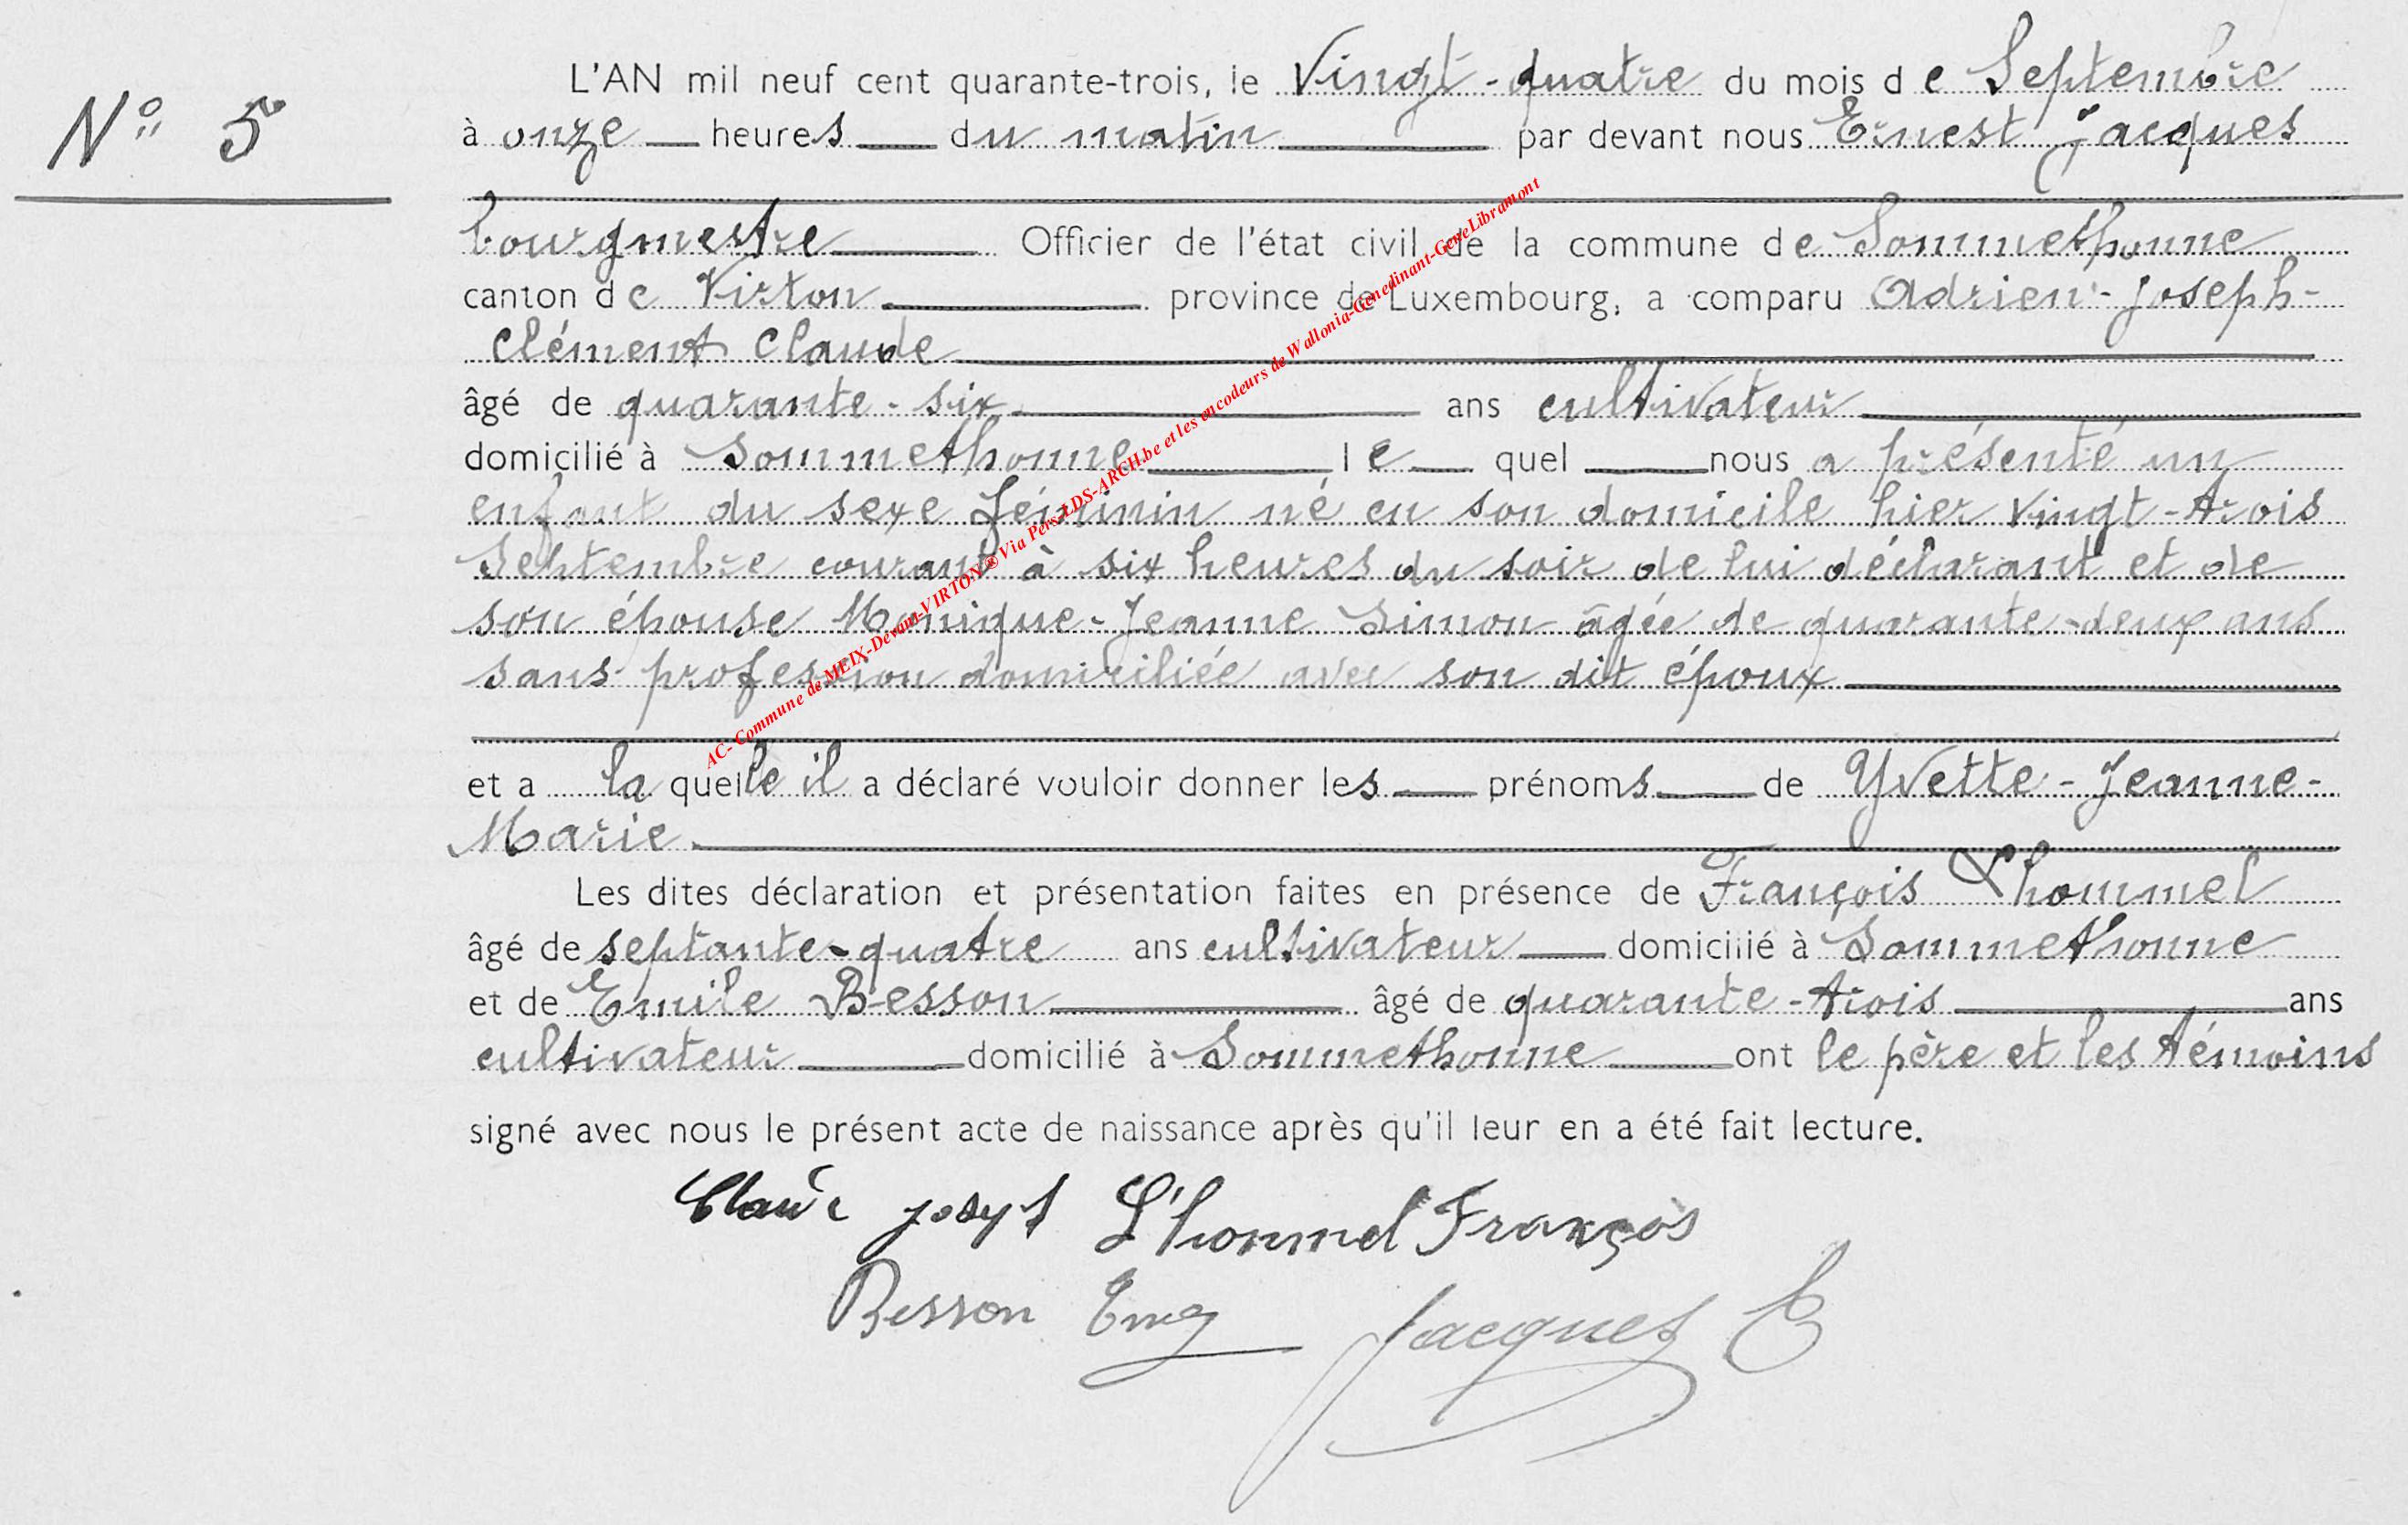 N° 5
L'AN mil neuf cent quarante-trois, le Vingt-quatre du mois de Septembre
à onze heures du matin par devant nous Ernest Jacques
bourgmestre Officier de l'état civil de la commune de Sommethonne
canton de Virton province de Luxembourg, a comparu Adrien-Joseph-
Clément Claude
âgé de quarante-six ans cultivateur
domicilié à Sommethonne le quel nous a présenté un
enfant du sexe féminin né en son domicile hier vingt-trois
Septembre courant à six heures du soir de lui déclarant et de
son épouse Monique-Jeanne Simon âgée de quarante-deux ans
sans profession domiciliée avec son dit époux
et a la quelle il a déclaré vouloir donner les prénoms de Yvette-Jeanne-
Marie
Les dites déclaration et présentation faites en présence de François Lhommel
âgé de septante-quatre ans cultivateur domicilié à Sommethonne
et de Emile Besson âgé de quarante-trois ans
cultivateur domicilié à Sommethonne ont le père et les témoins
signé avec nous le présent acte de naissance après qu'il leur en a été fait lecture.
Claude Joseph L'hommel François
Besson Jacques E
AC- Commune de MEIX-Devant-VIRTON @ Via Pers-LDS-ARCH.be et les encodeurs de Wallonia-Genedinant-GeneLibramont